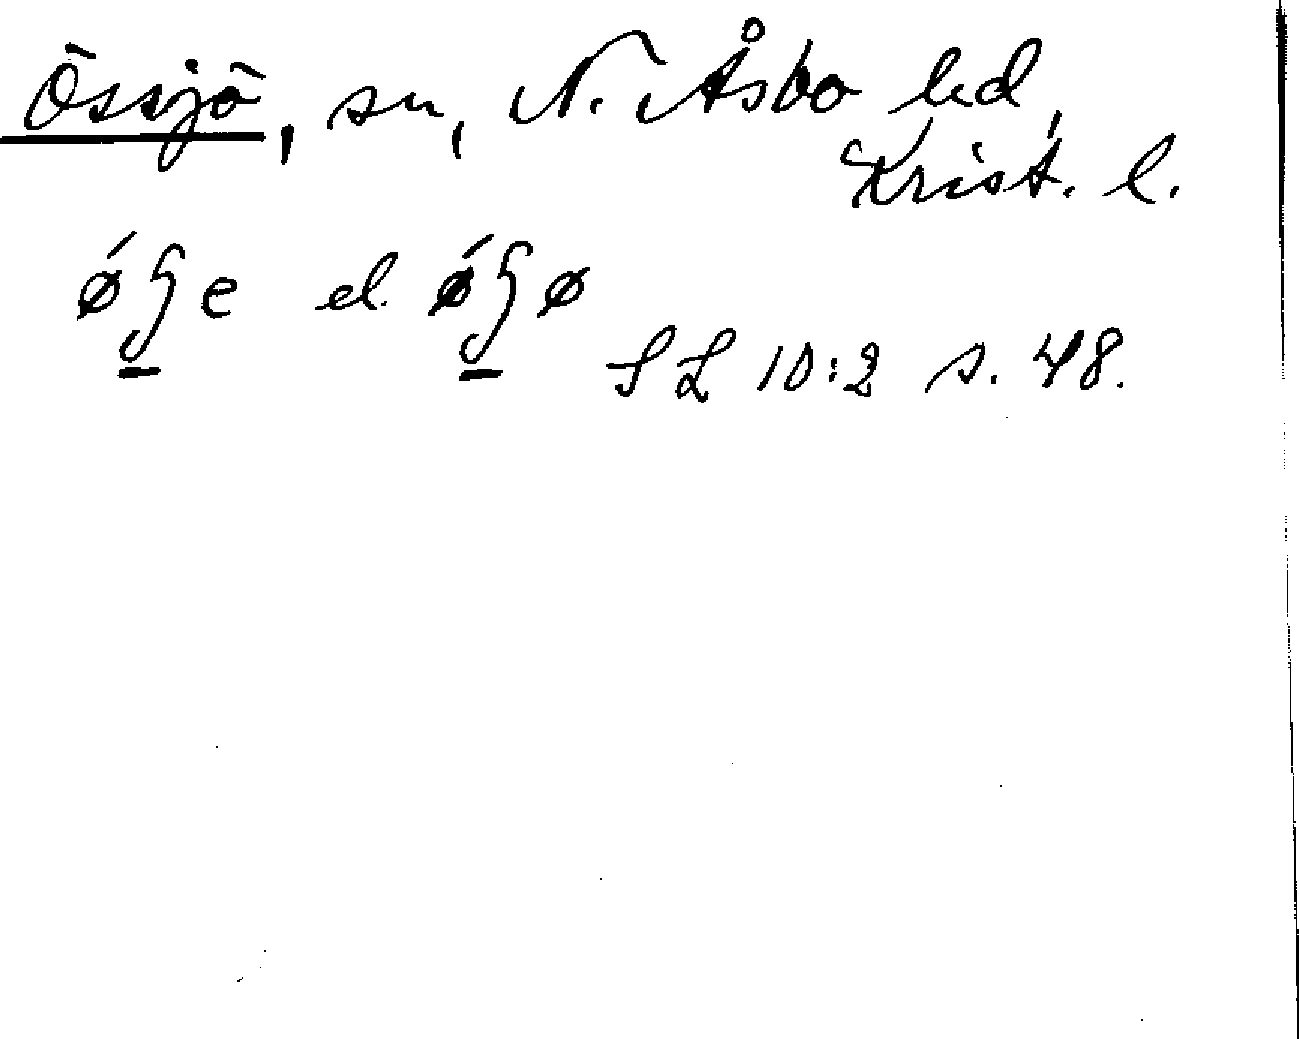 Össjö, sn, N. Åsbo hd,
Krist. l.
ǿʃ̲e el. ǿʃ̲ø
SL 10:2 s. 48.